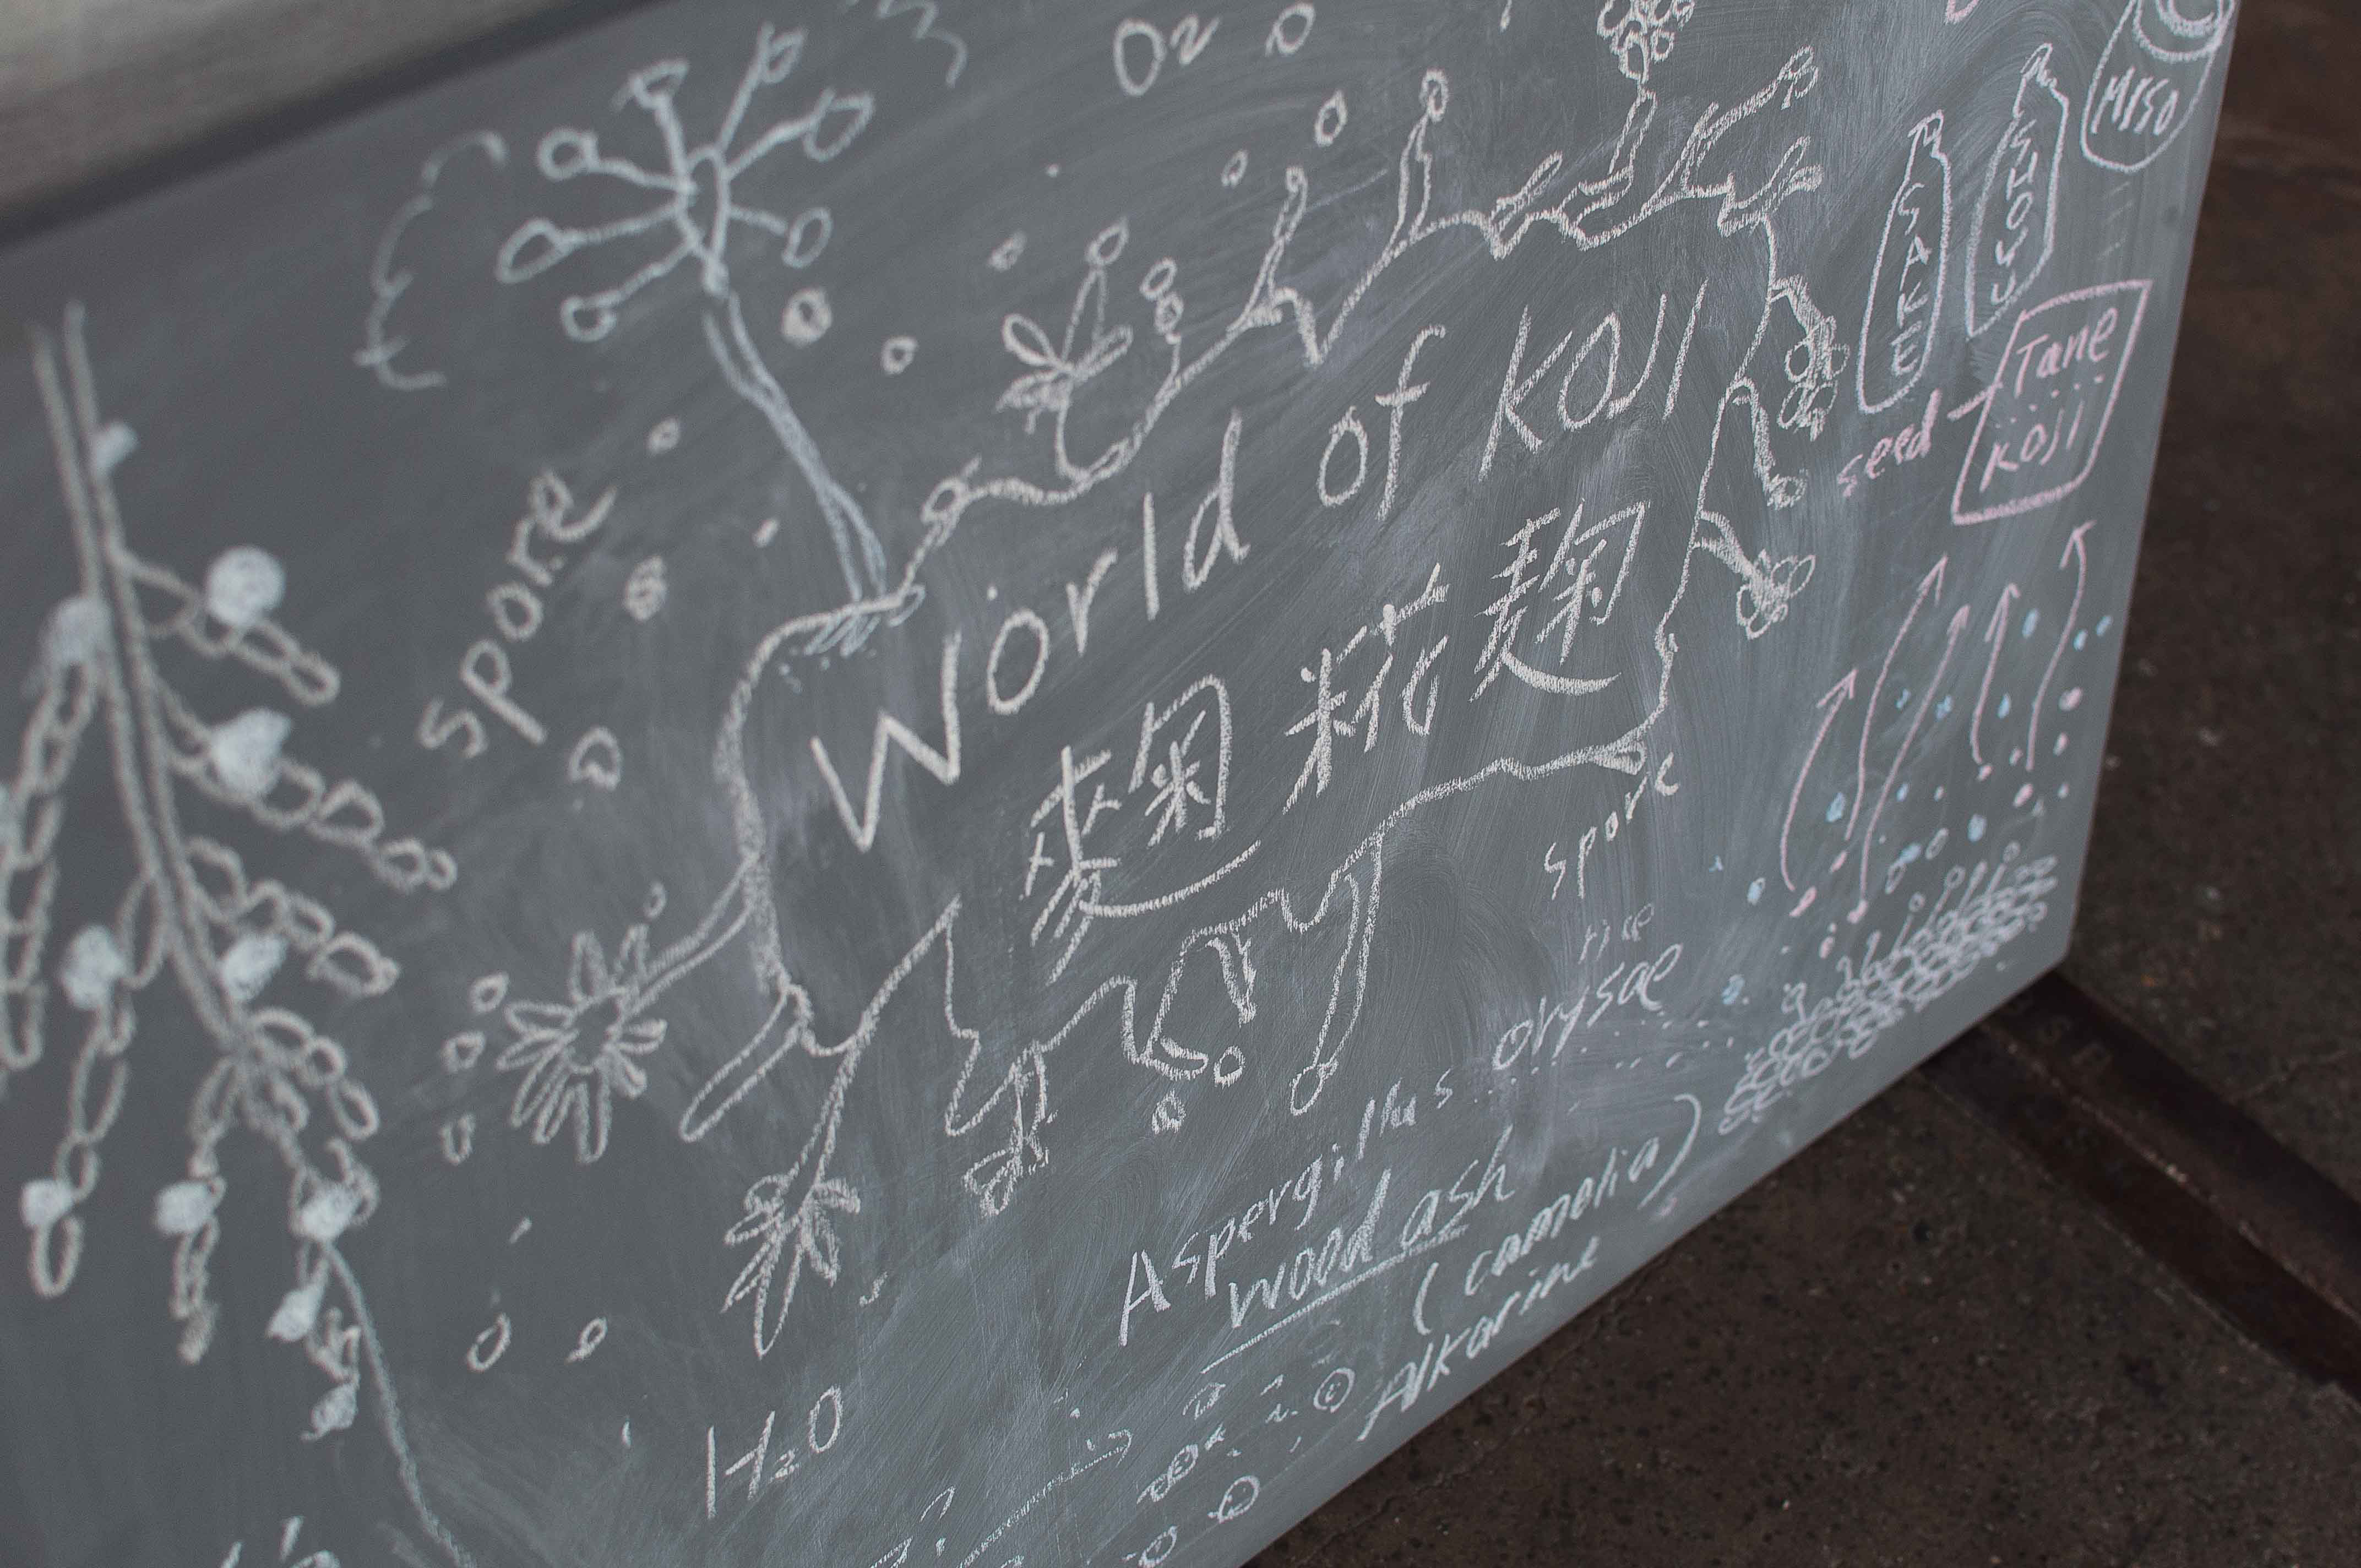 O2
MISO
SHOYU
SAKE
Tane
Koji
seed
spore
World of KOJI
麹 糀 麴
spore
rice
Aspergillus orysae
wood ash
(camelia)
Alkarine
H2O